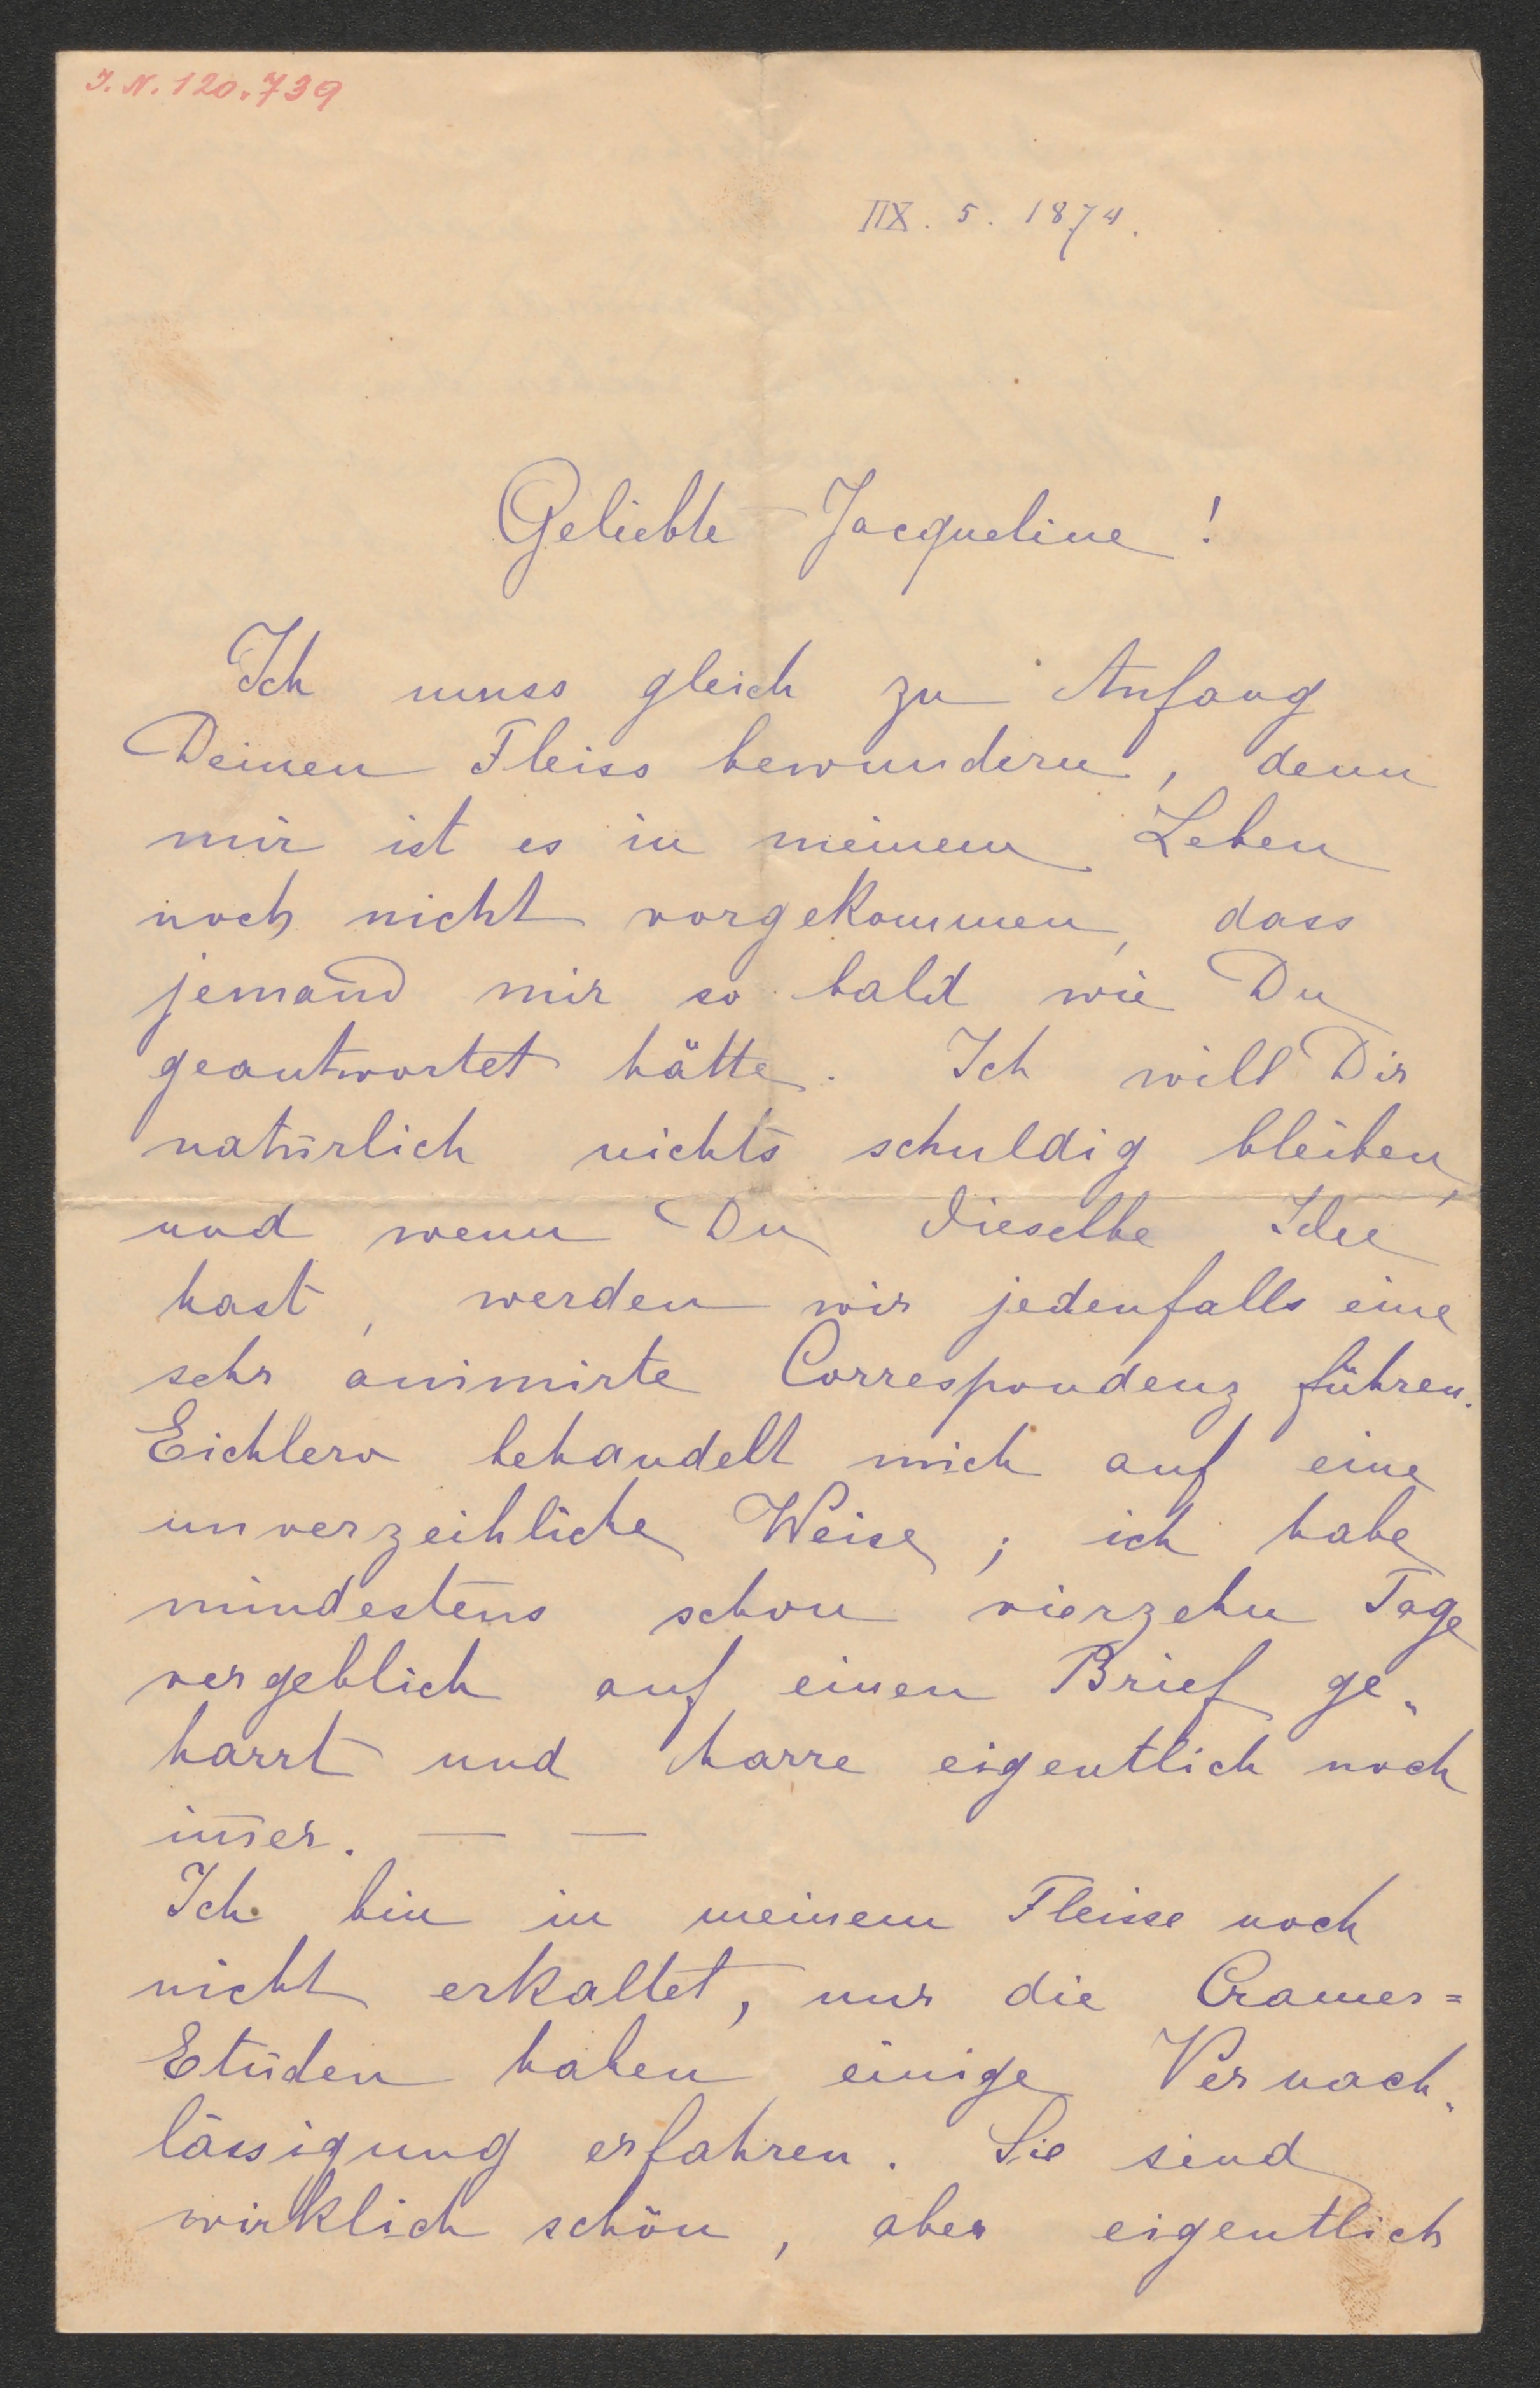 I. N. 120.739
IIX. 5. 1874.
Geliebte Jacqueline!
Ich muss gleich zu Anfang
Deinen Fleiss bewundern, denn
mir ist es in meinem Leben
noch nicht vorgekommen, dass
jemand mir so bald wie Du
geantwortet hätte. Ich will Dir
natürlich nichts schuldig bleiben,
und wenn Du dieselbe Idee
hast, werden wir jedenfalls eine
sehr animirte Correspondenz führen.
Eichlero behandelt mich auf eine
unverzeihliche Weise; ich habe
mindestens schon vierzehn Tage
vergeblich auf einen Brief ge„
harrt und harre eigentlich noch
im̅er. — —
Ich bin in meinem Fleisse noch
nicht erkaltet, nur die Cramer=
Etüden haben einige Vernach„
lässigung erfahren. Sie sind
wirklich schön, aber eigentlich